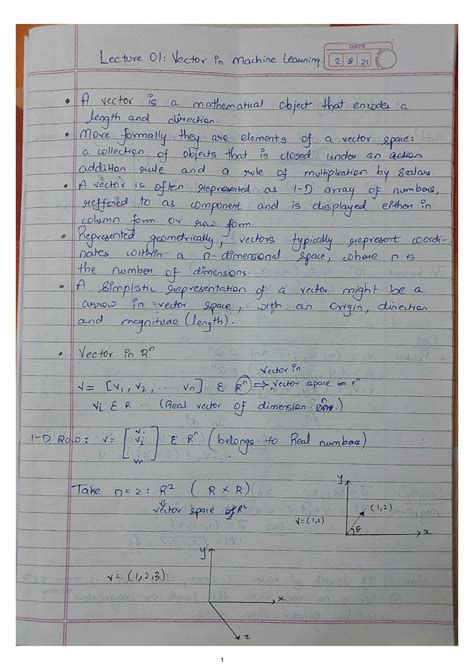 Lecture 01: Vector in Machine Learning.
DATE
2 8 21
• A vector is a mathematical object that encodes a
length and direction.
• More formally they are elements of a vector space:
a collection of objects that is closed under an action
addition rule and a rule of multiplication by scalars
• A vector is often represented as 1-D array of numbers,
reffered to as component and is displayed either in
column form or row form
• Represented geometrically, vectors typically represent coordi-
nates within a n-dimensional space, where n is
the number of dimensions.
• A simplistic representation of a vector might be a
arrow in vector space, with an origin, direction
and magnitude (length).
• Vector in Rⁿ
vector in
v = [v₁, v₂, ... vₙ] ε Rⁿ ⟹ vector space in rⁿ
vᵢ ε R ... (Real vector of dimension
1-D Row: v = [v₁ v₂ ⋮ vₙ] ε Rⁿ (belongs to Real numbers)
Take n=2: R² (R × R)
vector space of R²
y
(1,2)
v=(1,1)
θ
x
y
v=(1,2,3)
x
z
1